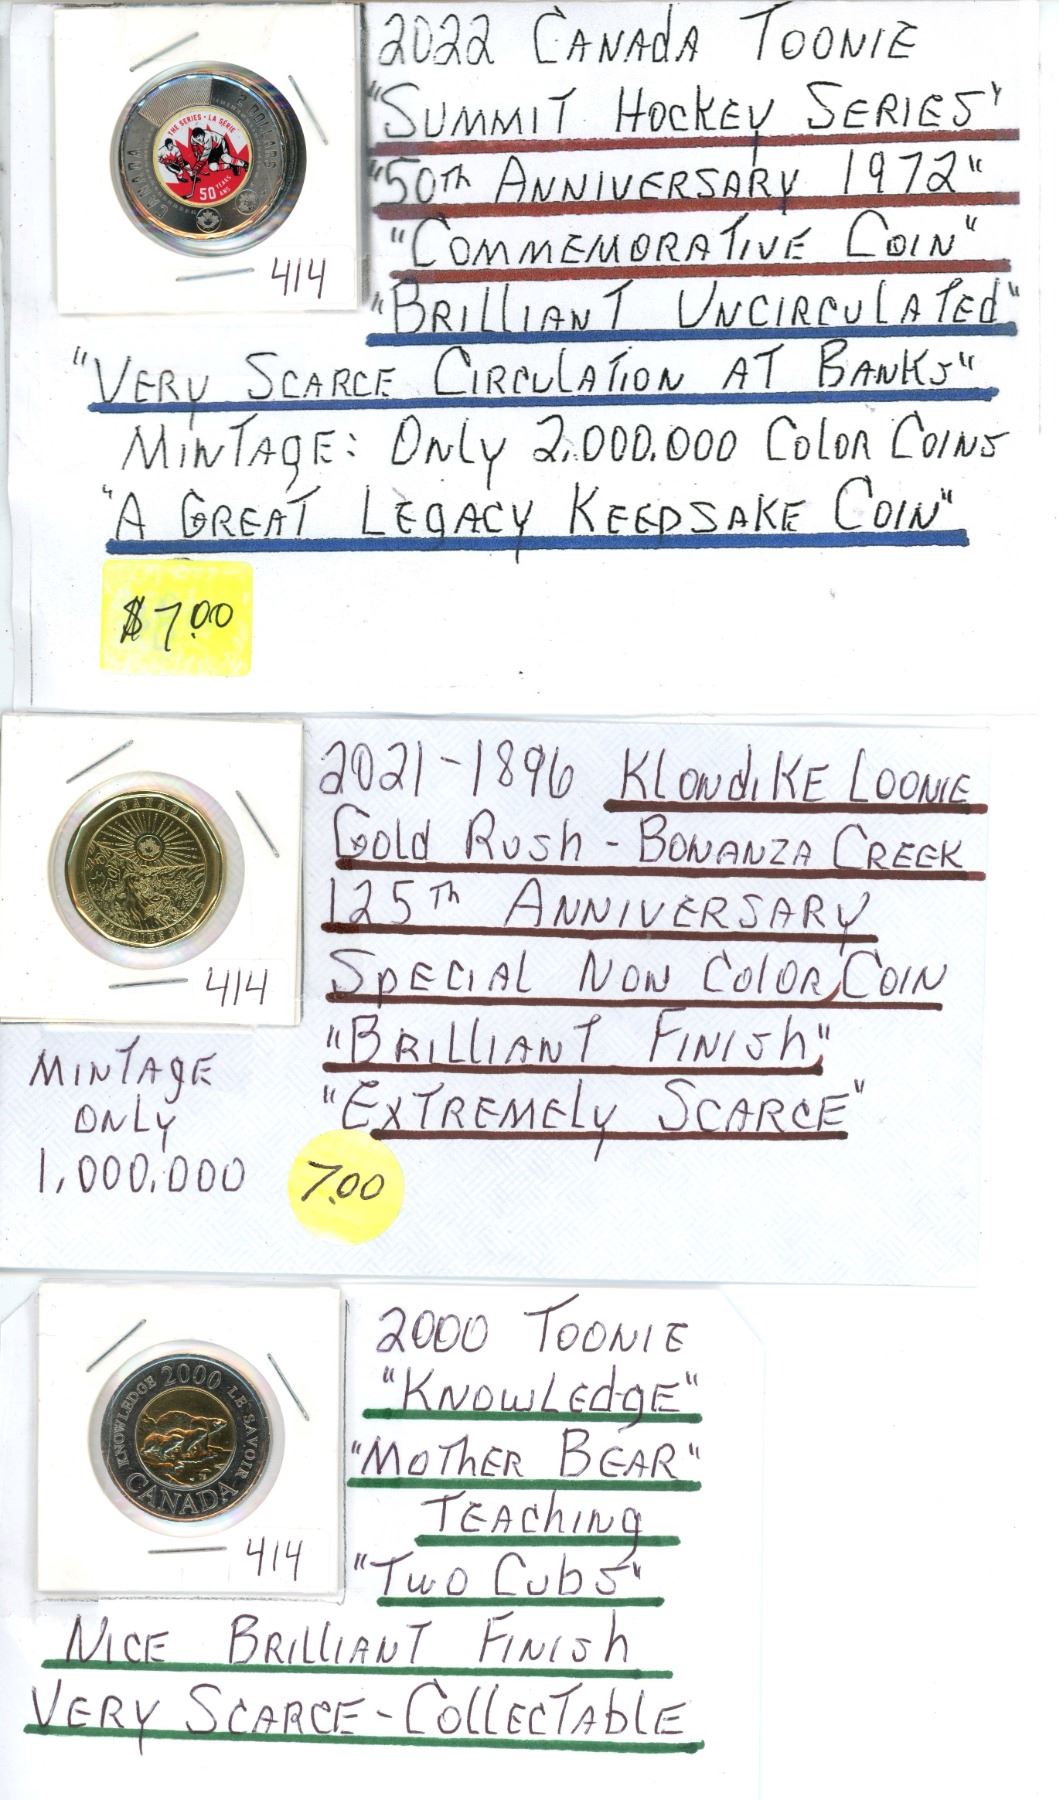 2022 CANAdA TOONIE
"SUMMIT HOCKEY SERIES"
"50Th ANNIVERSARY 1972"
"COMMEMORATIVE COIN"
"BRILLIANT UNCIRCULATEd"
"VERY SCARCE CIRCULATION AT BANKS"
MINTAGE: ONLY 2,000,000 COLOR COINS
"A GREAT LEGACY KEEPSAKE COIN"
$7.00
THE SERIES · LA SÉRIE
2 DOLLARS
CANADA
50 YEARS ANS
414
2021-1896 KLONdiKE LOONIE
GOLd RUSh - BONANZA CREEK
125Th ANNIVERSARY
SPECIAL NON COLOR COIN
"BRILLIANT FINISh"
"EXTREMELY SCARCE"
CANADA
414
MINTAGE
ONLY
1,000,000
7.00
2000 TOONIE
"KNOWLEdgE"
"MOTHER BEAR"
TEAChING
"TWO CUbS"
NICE BRILLIANT FINISh
VERY SCARCE - COLLECTAbLE
KNOWLEDGE 2000 LE SAVOIR
CANADA
414